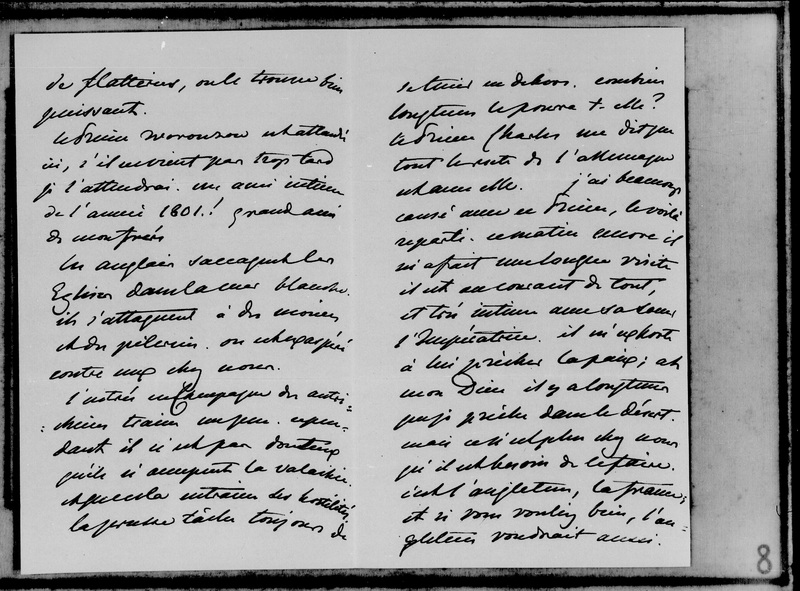 de flatteries, on le trouve bien
puissant.
le Prince Woronzow est attendu
ici, s'il ne vient pas trop tard
je l'attendrai. un ami intime
de l'année 1801.! grand ami
de mon frère
les anglais saccagent les
Eglises dans la mer blanche.
ils s'attaquent à des moines
et des pélerins. on est exaspéré
contre eux chez nous.
l'entrée en Campagne des autri-
-chiens traine un peu. cepen-
dant il n'est pas douteux
qu'ils n'occupent la valachie.
et que cela entraine des hostilités
la prusse tâche toujours de
se tenir en dehors. combien
longtems le pourra t-elle?
le Prince Charles me dit que
tout le reste de l'allemagne
est avec elle. j'ai beaucoup
causé avec ce Prince, le voilà
reparti. ce matin encore il
m'a fait une longue visite
il est au courant de tout,
et très intime avec sa soeur
l'Impératrice. il m'exhorte
à lui prêcher la paix; ah
mon Dieu il y a longtems
que je prêche dans le désert.
mais ce n'est plus chez nous
qu'il est besoin de le faire.
c'est l'angleterre, la france;
et si vous vouliez bien, l'an-
gleterre voudrait aussi.
8